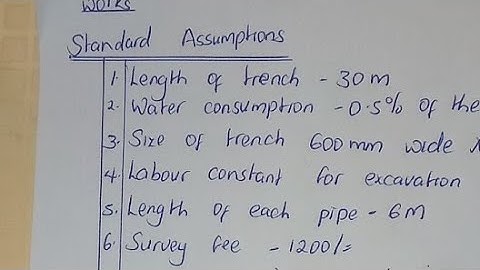 Works
Standard Assumptions
1. Length of trench - 30m
2. Water consumption - 0.5% of the
3. Size of trench 600mm wide
4. Labour constant for excavation
5. Length of each pipe - 6M
6. Survey fee - 1200/=